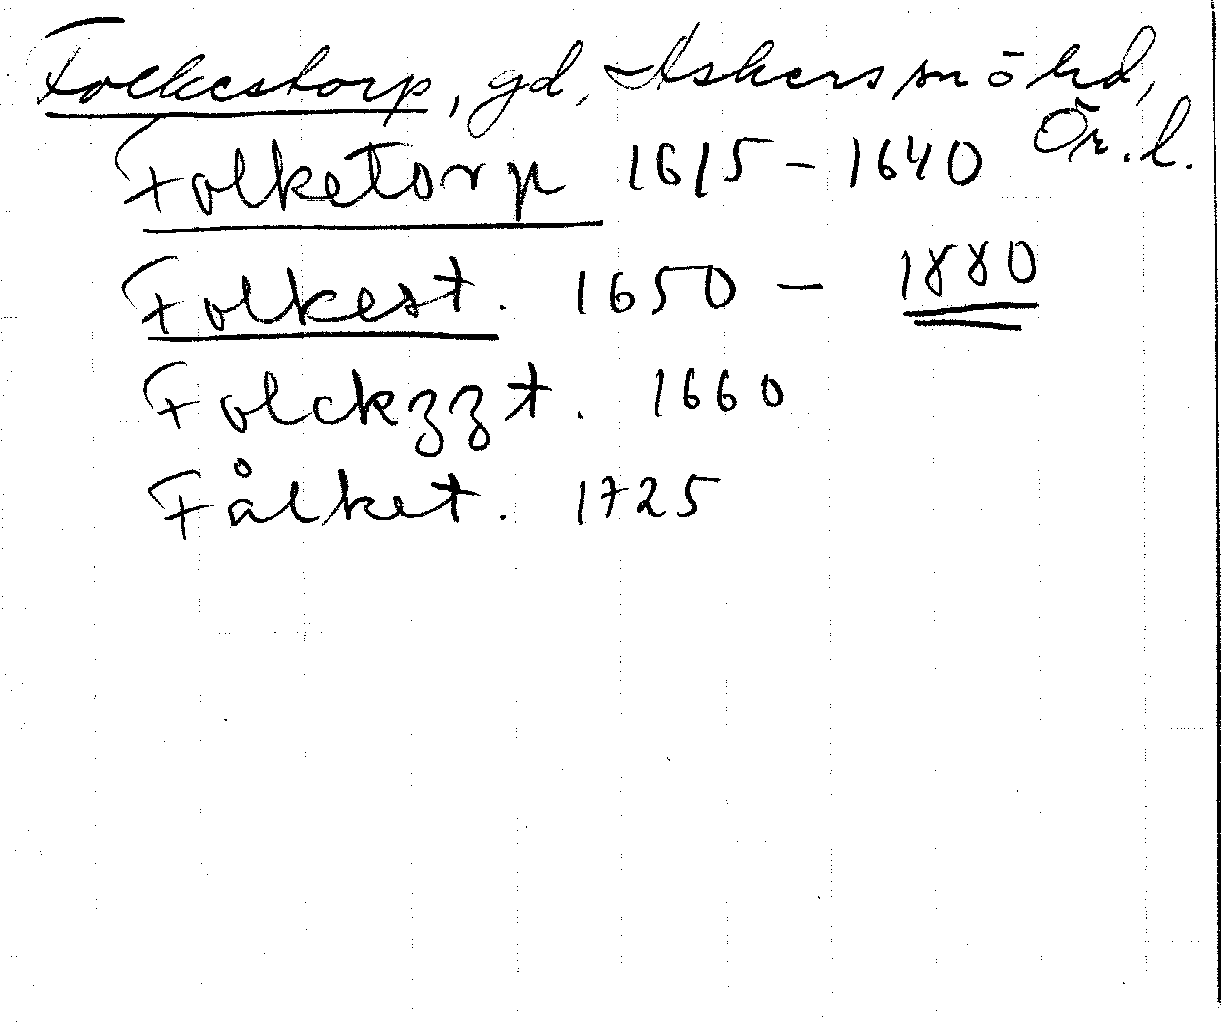 Folkestorp, gd, Askers sn ö hd,
Ör. l.
Folketorp 1615 - 1640
Folkest. 1650 - 1880
Folckzzt. 1660
Fålket. 1725